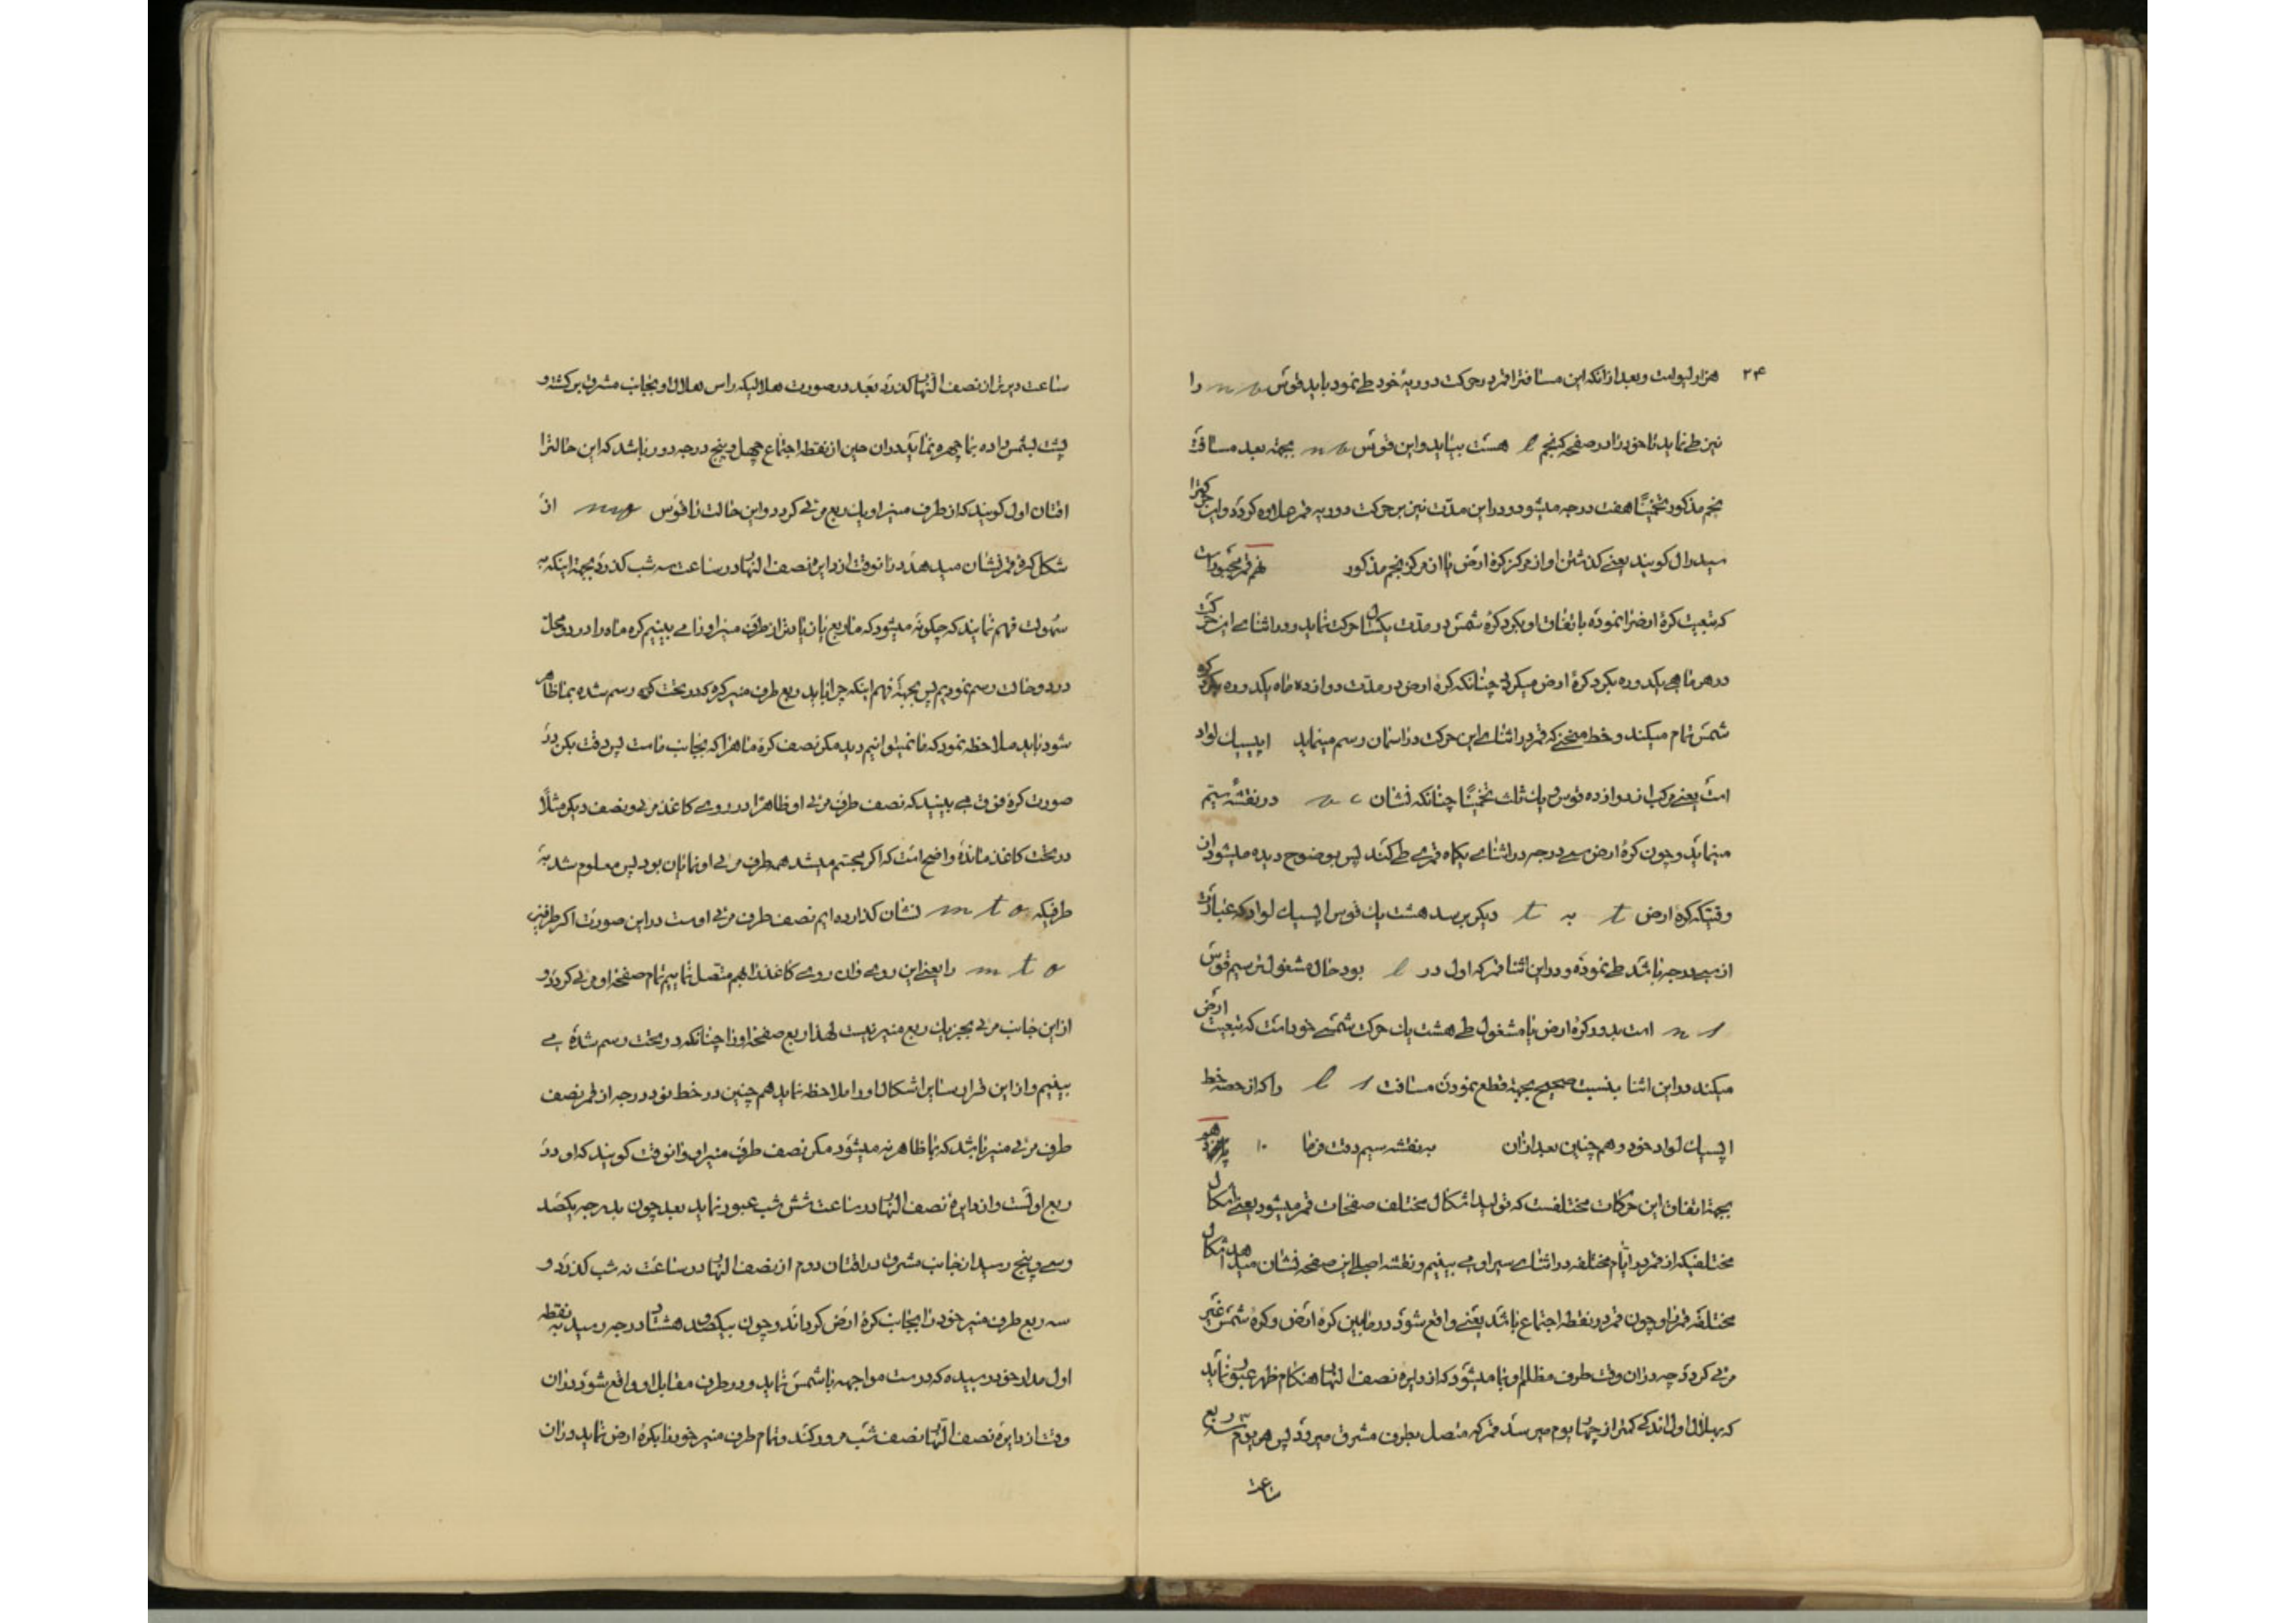 ۲۴ هزار لیو است و بعد از آنکه این مسافترا قمر در حرکت دوریهٔ خود طی نمود باید قوس n را
نیز طی نماید تا خود را در صفحه که نجم l هست بیاید و این قوس n بجهته بعد مسافت
نجم مذکور تخمیناً هفت درجه میشود و در این مدت نیز بر حرکت دوریه قمر علاوه کردد و این حرکترا
سیدرال کویند یعنی کذشتن او از مرکز کرهٔ ارض با از مرکز نجم مذکور نهم قمر مجبور است
که تبعیت کرهٔ ارض را نموده باتفاق او بکرد کرهٔ شمس در مدت یکسال حرکت نماید و در اثنای این حرکت
در هر ماهی یکدوره بکرد کرهٔ ارض میکردد چنانکه کرهٔ ارض در مدت دوازده ماه یکدوره بکرد کره
شمس تمام میکند و خط منحنی که قمر در اثنای این حرکت در آسمان رسم مینماید اپیسیک لواد
است یعنی مرکب از دوازده قوس و یک ثلث تخمیناً چنانکه نشان در نقشه سیّم
مینماید و چون کرهٔ ارض سی درجه در اثنای یکماه قمری طی کند پس بوضوح دیده میشود از آن
وقتیکه کرهٔ ارض t به t دیکر برسد هشت یک قوس اپیسیک لواد که عبارت
از سی درجه باشد طی نموده و در این اثنا قمر که اول در l بود حال مشغول ترسیم قوس
n s است بدور کرهٔ ارض یا مشغول طی هشت یک حرکت شمسی خود است که تبعیت ارض
میکند در این اثنا بنسبت صحیح بجهته قطع نمودن مسافت l s را که از حصه خط
اپیسیک لواد خود و هم چنین بعد از آن به نقشه سیم دقت فرما ۱۰
بجهته اتفاق این حرکات مختلفست که تولید اشکال مختلف صفحات قمر میشود یعنی اشکال
مختلفیکه از قمر در ایّام مختلفه در اثنای سیر او می بینیم و نقشه اصلی این صفحه نشان میدهد اشکال
مختلفه قمر را و چون قمر در نقطه اجتماع باشد یعنی واقع شود در مابین کرهٔ ارض و کرهٔ شمس غیر
مرئی کردد چه در آن وقت طرف مظلم او با ما میشود که از دایره نصف النهار هنکام ظهر عبور نماید
که بهلال اول اندکی کمتر از چهار یوم میرسد قمر که متصل بطرف مشرق میرود پس هر یوم سه ربع
ساعت
ساعت دیرتر از نصف النهار کذرد بعد در صورت هلالیکه راس هلال او بجانب مشرق برکشته و
پشت بشمس داده بما چهره نماید در آن حین از نقطه اجتماع چهل و پنج درجه دور باشد که این حالترا
اقتان اول کویند که از طرف منیر او یک ربع مرئی کردد و این حالت را قوس از
شکل کرهٔ قمر نشان میدهد در آنوقت از دایره نصف النهار در ساعت سه شب کذرد بجهته اینکه به
سهولت فهم نمایند که چکونه میشود که ما ربع یا زیادتر از طرف منیر او را می بینیم کره ماه را در دو محل
در دو حالت رسم نمودیم پس بجهتهٔ فهم اینکه چرا باید ربع طرف منیر کره که در تحت کره رسم شده بما ظاهر
شود باید ملاحظه نمود که ما نمیتوانیم دید مکر نصف کرهٔ ماهرا که بجانب ماست پس دقت بکن در
صورت کرهٔ فوق می بینید که نصف طرف مرئی او ظاهرا در روی کاغذ مرئی و نصف دیکر مثلاً
در تحت کاغذ مانده واضح است که اکر مجسّم میشد همه طرف مرئی او نمایان بود پس معلوم شد به
طرفیکه m t o نشان کذارده ایم نصف طرف مرئی اوست در این صورت اکر طرفین
m t o را یعنی این روی و آن روی کاغذ را بهم متصل نماییم تمام صفحه او مرئی کردد و
از این جانب مرئی بجز یک ربع منیر نیست لهذا ربع صفحه او را چنانکه در تحت رسم شده می
بینیم و از این قرار سایر اشکال او را ملاحظه نماید هم چنین در خط نود درجه از قمر نصف
طرف مرئی منیر باشد که بما ظاهر نه میشود مکر نصف طرف منیر او و آنوقت کویند که او در
ربع اولست و از دایره نصف النهار در ساعت شش شب عبور نماید بعد چون بدرجه یکصد
و سی و پنج رسید از جانب مشرق در اقتان دوم از نصف النهار در ساعت نه شب کذرد و
سه ربع طرف منیر خود را بجانب کرهٔ ارض کرداند و چون بیکصد و هشتاد درجه رسید به نقطه
اول مدار خود رسیده که درست مواجهه با شمس نماید و در طرف مقابل او واقع شود در آن
وقت از دایره نصف النهار نصف شب مرور کند و تمام طرف منیر خود را بکرهٔ ارض نماید در آن